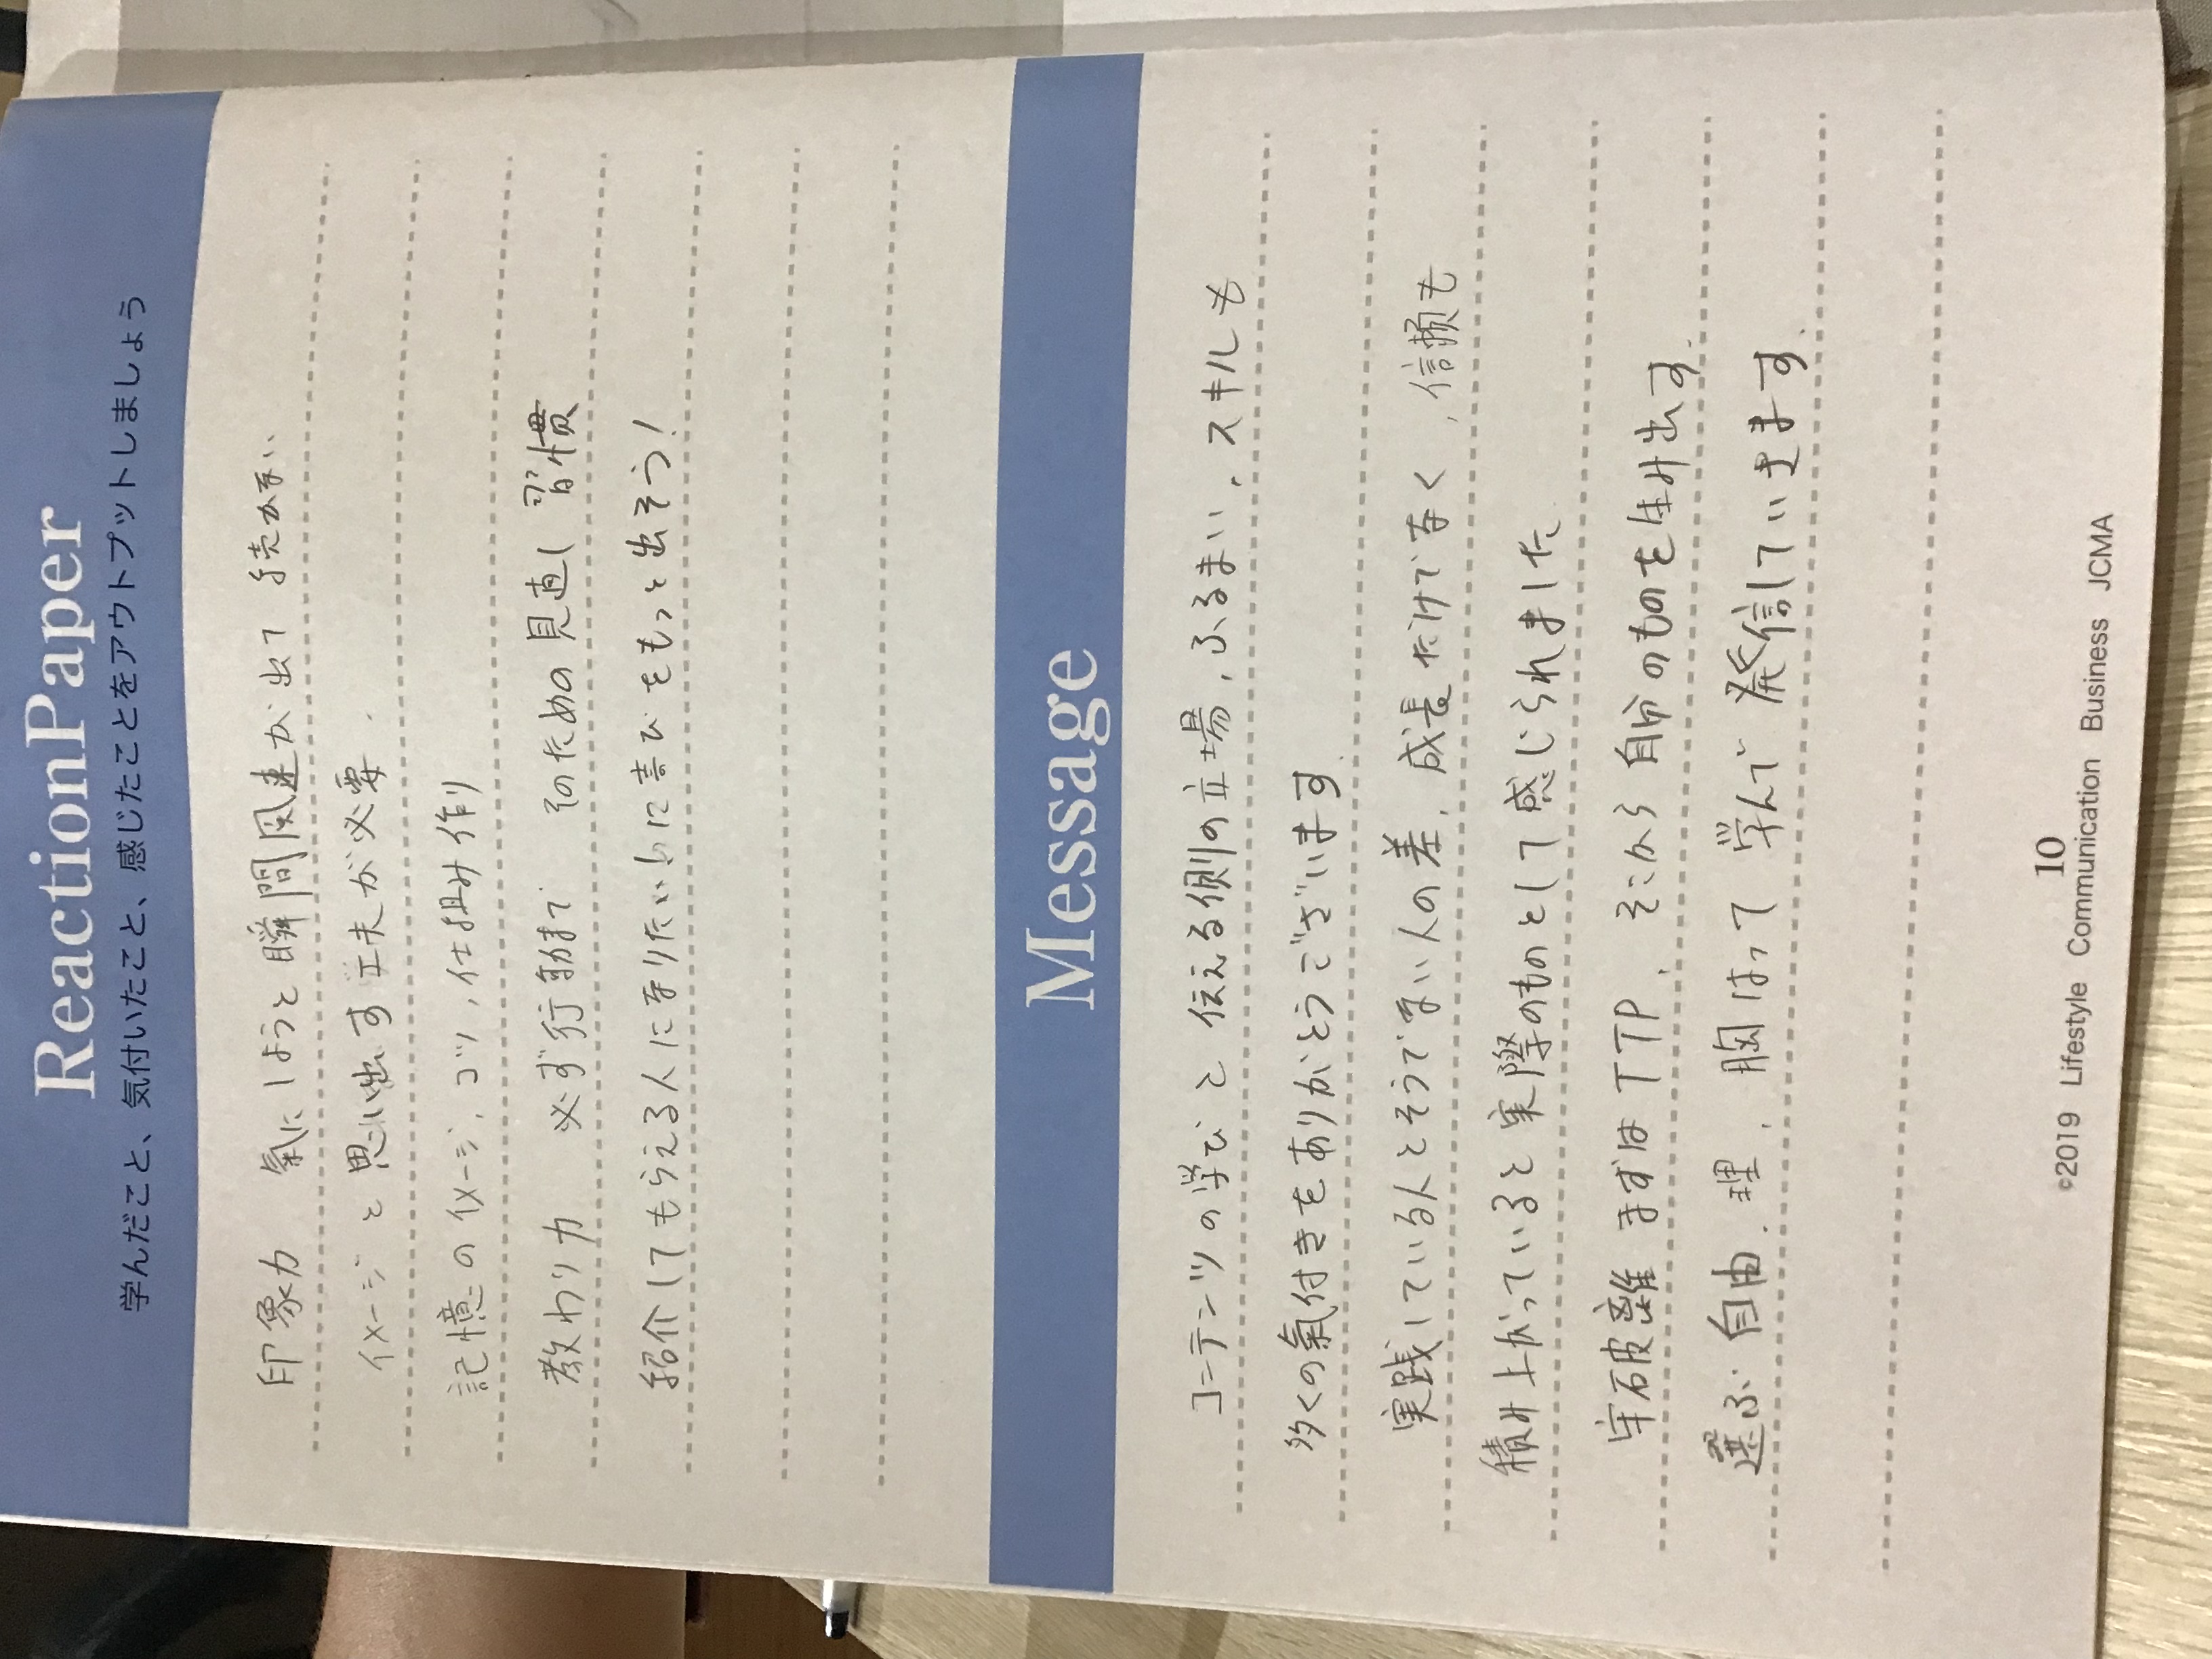 ReactionPaper
学んだこと、気付いたこと、感じたことをアウトプットしましょう
印象力　氣にしようと瞬間風速が出て 続かない
イメージと思い出す工夫が必要.
記憶のイメージ, コツ, 仕組み作り
教わり力　必ず行動まで　そのための見直し 習慣
紹介してもらえる人になりたい に喜びをもっと出そう!
Message
コンテンツの学びと伝える側の立場, ふるまい, スキルも
多くの氣付きをありがとうございます.
実践している人とそうでない人の差, 成長だけでなく, 信頼も
積み上がっていると実際のものとして感じられました
守破離 まずはTTP, そこから自分のものを生み出す.
選ぶ 自由, 理, 胸はって 学んで 発信していきます.
10
©2019 Lifestyle Communication Business JCMA